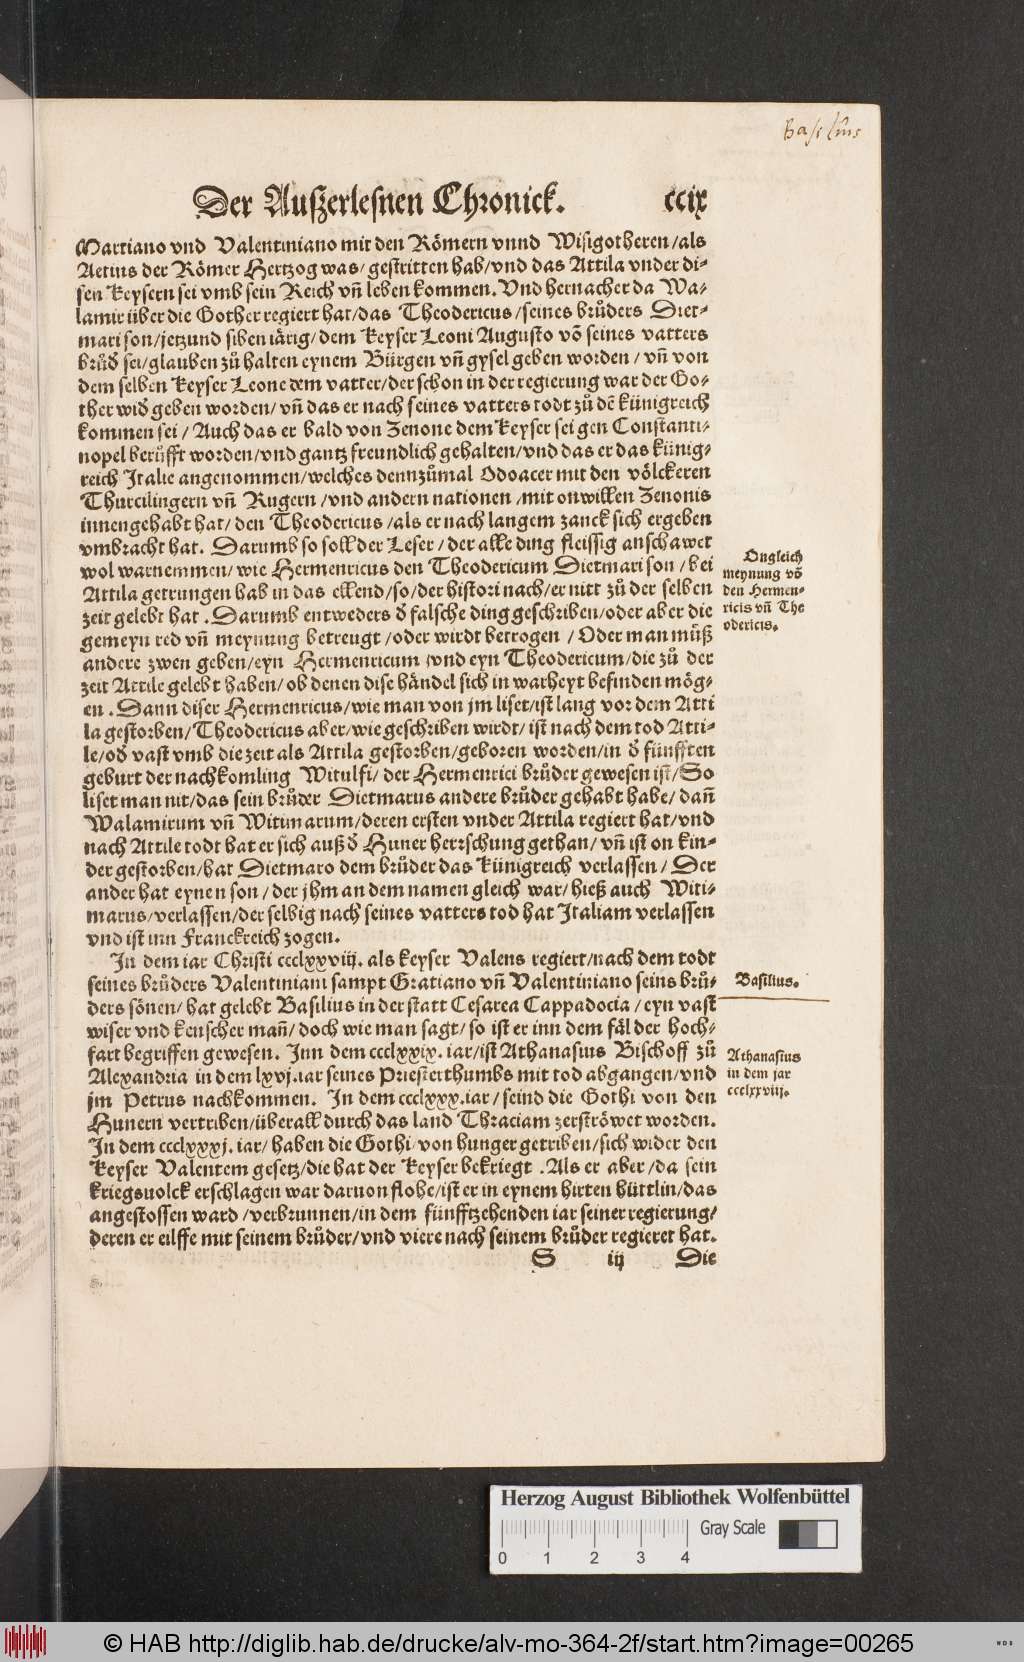 Basilius
Der Außerlesnen Chronick. ccix
Martiano vnd Valentiniano mit den Römern vnnd Wisigotheren/als
Aetius der Römer Hertzog was/ gestritten hab/vnd das Attila vnder di-
sen Keysern sei vmb sein Reich vñ leben kommen. Vnd hernacher da Wa-
lamir über die Gother regiert hat/das Theodericus/seines brůders Diet-
mari son/jetzund siben iärig/dem Keyser Leoni Augusto võ seines vatters
brůď sei/glauben zů halten eynem Bürgen vñ gysel geben worden/ vñ von
dem selben Keyser Leone dem vatter/der schon in der regierung war der Go-
ther wiď geben worden/ vñ das er nach seines vatters todt zů dẽ künigreich
kommen sei/ Auch das er bald von Zenone dem Keyser sei gen Constanti-
nopel berůfft worden/vnd gantz freundlich gehalten/vnd das er das künig-
reich Italie angenommen/welches dennzůmal Odoacer mit den völckeren
Thurcilingern vñ Rugern/vnd andern nationen/mit onwillen Zenonis
innengehabt hat/ den Theodericus/als er nach langem zanck sich ergeben
vmbracht hat. Darumb so soll der Leser/ der alle ding fleissig anschawet
wol warnemmen/wie Hermenricus den Theodericum Dietmari son/bei
Attila getrungen hab in das ellend/so/der histori nach/er nitt zů der selben
zeit gelebt hat. Darumb entweders ď falsche ding geschriben/oder aber die
gemeyn red vñ meynung betreugt/oder wirdt betrogen/ Oder man můß
andere zwen geben/eyn Hermenricum vnd eyn Theodericum/die zů der
zeit Attile gelebt haben/ob denen dise händel sich in warheyt befinden mög-
en. Dann diser Hermenricus/wie man von jm liset/ist lang vor dem Atti
la gestorben/Theodericus aber/wie geschriben wirdt/ ist nach dem tod Atti-
le/oď vast vmb die zeit als Attila gestorben/geboren worden/in ď fünfften
geburt der nachkomling Witulfi/ der Hermenrici brůder gewesen ist/So
liset man nit/das sein brůder Dietmarus andere brůder gehabt habe/dañ
Walamirum vñ Witimarum/deren ersten vnder Attila regiert hat/vnd
nach Attile todt hat er sich auß ď Huner herrschung gethan/ vñ ist on kin-
der gestorben/hat Dietmaro dem brůder das Künigreich verlassen/ Der
ander hat eynen son/der jhm an dem namen gleich war/hieß auch Witi-
marus/verlassen/der selbig nach seines vatters tod hat Italiam verlassen
vnd ist inn Franckreich zogen.
Ongleich
meynung võ
den Hermen-
ricis vñ The
odericis.
In dem iar Christi ccclxxviij. als keyser Valens regiert/nach dem todt
seines brůders Valentiniani sampt Gratiano vñ Valentiniano seins brů-
ders sönen/hat gelebt Basilius in der statt Cesarea Cappadocia/eyn vast
wiser vnd keuscher mañ/doch wie man sagt/so ist er inn dem fäl der hoch-
fart begriffen gewesen. Inn dem ccclxxix. iar/ist Athanasius Bischoff zů
Alexandria in dem lxvj. iar seines Priesterthumbs mit tod abgangen/vnd
jm Petrus nachkommen. In dem ccclxxx. iar/ seind die Gothi von den
Hunern vertriben/überall durch das land Thraciam zerströwet worden.
In dem ccclxxxj. iar/haben die Gothi/von hunger getriben/sich wider den
Keyser Valentem gesetz/die hat der Keyser bekriegt. Als er aber/da sein
kriegsuolck erschlagen war daruon flohe/ist er in eynem hirten hüttlin/das
angestossen ward/verbrunnen/in dem fünfftzehenden iar seiner regierung/
deren er eilffe mit seinem brůder/vnd viere nach seinem brůder regieret hat.
Basilius.
Athanasius
in dem jar
ccclxxviij.
S iij Die
Herzog August Bibliothek Wolfenbüttel
Gray Scale
0 1 2 3 4
© HAB http://diglib.hab.de/drucke/alv-mo-364-2f/start.htm?image=00265